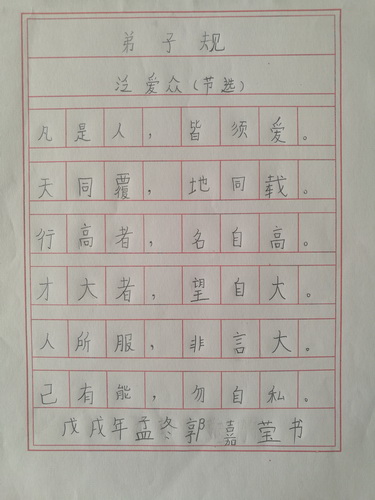 弟子规
泛爱众(节选)
凡是人,皆须爱。
天同覆,地同载。
行高者,名自高。
才大者,望自大。
人所服,非言大。
己有能,勿自私。
戊戌年孟冬郭嘉莹书